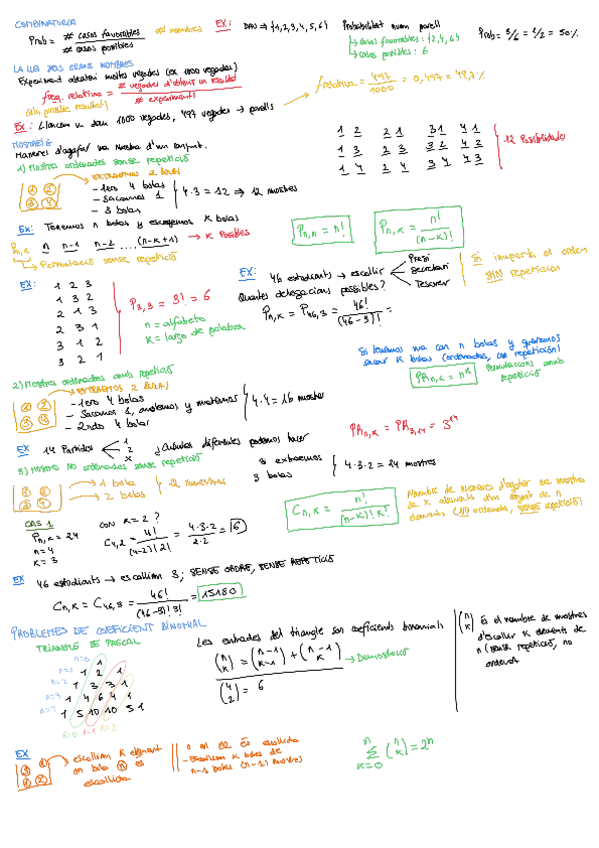 COMBINATORIA
Prob = # casos favorables / # casos posibles
# nombres
EX: DAU => {1,2,3,4,5,6}
Probabilitat num parell
casos favorables: {2,4,6}
casos posibles: 6
Prob = 3/6 = 1/2 = 50%
LA LLEI DELS GRANS NOMBRES
Experiment aleatori moltes vegades (ex 1000 vegades)
freq. relativa = # vegades d'obtenir un resultat / # experiments
(d'un possible resultat)
f relativa = 497/1000 = 0,497 = 49,7%
EX: Llancem un dau 1000 vegades, 497 vegades → parells
MOSTREIG
Maneres d'agafar una mostra d'un conjunt.
1) Mostra ordenades sense repetició
EXTRAEMOS 2 BOLAS
1 2 3 4
- 1ero 4 bolas
- Sacamos 1
- 3 bolas
4·3 = 12 => 12 mostres
1 2 2 1 3 1 4 1
1 3 2 3 3 2 4 2
1 4 2 4 3 4 4 3
12 Posibilidades
EX: Tenemos n bolas y escogemos K bolas
Pn,k n n-1 n-2 ... (n-k+1) → K Posibles
Permutació sense repetició
Pn,n = n!
Pn,k = n! / (n-k)!
Si importa el orden
SIN repeticion
EX:
1 2 3
1 3 2
2 1 3
2 3 1
3 1 2
3 2 1
P3,3 = 3! = 6
n = alfabeto
K = largo de palabra
EX: 46 estudiants → escollir
Presi
Secretari
Tesorer
Quantes delegacions possibles?
Pn,k = P46,3 = 46! / (46-3)! =
Si tenemos una con n bolas y queremos
sacar K bolas (ordenadas, con repetición)
PRn,k = n^k
Permutacions amb
repetició
2) Mostres ordenades amb repetició
EXTRAEMOS 2 BOLAS
1 2 3 4
- 1ero 4 bolas
- Sacamos 1, anotemos y metemos
- 2ndo 4 bolas
4·4 = 16 mostres
PRn,k = PR3,14 = 3^14
EX 14 Partidos
1
2
x
3) Mostres NO ordenades sense repetició
1 2 3 4
1 bola
2 bolas
12 muestras
3 extraemos
3 bolas
4·3·2 = 24 mostres
Cn,k = n! / (n-k)! k!
Nombre de maneres d'agafar una mostra
de K elements d'un conjunt de n
elements (NO ordenats, SENSE repetició)
CAS 1
Pn,k = 24
n = 4
K = 3
con K = 2 ?
C4,2 = 4! / (4-2)! 2! = 4·3·2 / 2·2 = 6
EX 46 estudiants → escollim 3; SENSE ORDRE, SENSE REPETICIÓ
Cn,k = C46,3 = 46! / (46-3)! 3! = 15180
PROBLEMES DE COEFICIENT BINOMIAL
TRIANGLE DE PASCAL
n=0 1
n=1 1 2 1
n=2 1 3 3 1
n=3 1 4 6 4 1
n=4 1 5 10 10 5 1
K=0 K=1 K=2
Les entrades del triangle son coeficients binomials
(n k) = (n-1 k-1) + (n-1 k) → Demostració
(4 2) = 6
(n k) És el nombre de mostres
d'escollir K elements de
n (sense repetició, no
ordenat
EX
escollim K element
on bola K es
escollida
o no es és escollida
n-1 bolas (n-1) mostres
n Σ K=0 (n k) = 2^n